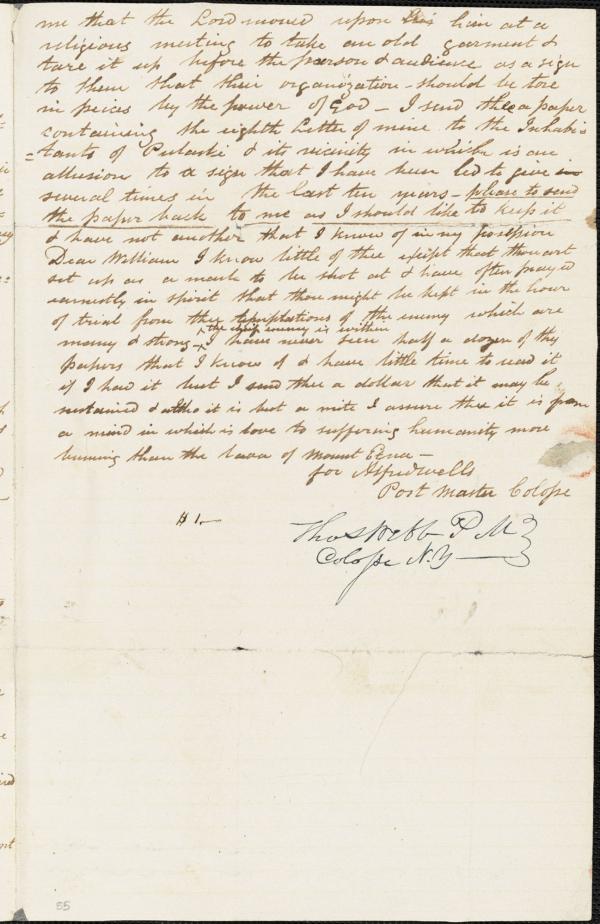 me that the Lord moved upon his him at a
religious meeting to take an old garment &
tare it up before the parson & audience as a sign
to them that their organization should be tore
in peices by the power of God – I send thee a paper
containing the eighth Letter of mine to the Inhabi=
=tants of Pulaski & its vicinity in which is an
allusion to a sign that I have been led to give in
several times in the last ten years – please to send
the paper back to me as I should like to keep it
& have not another that I know of in my possession
Dear William I know little of thee except that thou art
set up as a mark to be shot at & have often prayed
earnestly in spirit that thou might be kept in the hour
of trial from the temptations of the enemy which are
the chief enemy is within
many & strong – I have never seen half a dozen of thy
papers that I know of & have little time to read it
if I had it but I send thee a dollar that it may be
sustained & altho it is but a mite I assure thee it is from
a mind in which is love to suffering humanity more
burning than the lava of Mount Etna –
for Alfred Wells
Post Master Colosse
$ 1.–
Thos Webb P. M
Colosse N. Y
55